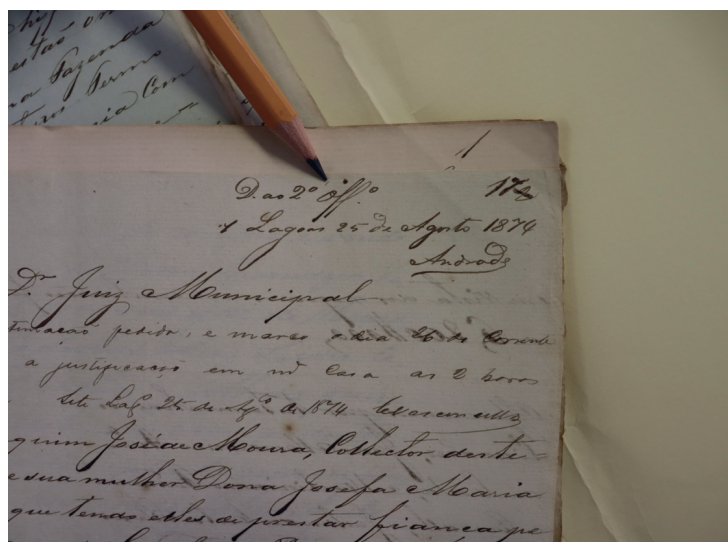 estão
Fazenda
Termo
Com
1
D. ao 2º Offº 172
Lagoas 25 de Agosto 1874
Andrade
Dor Juiz Municipal
timacaō pedida, e marco o dia 26 do Corrente
a justificacaō em mª Casa as 2 horas
Sete Lagª 25 de Agtº de 1874
quim José de Moura, Collector deste
e sua mulher Dona Josefa Maria
que tendo elles de prestar fianca pe